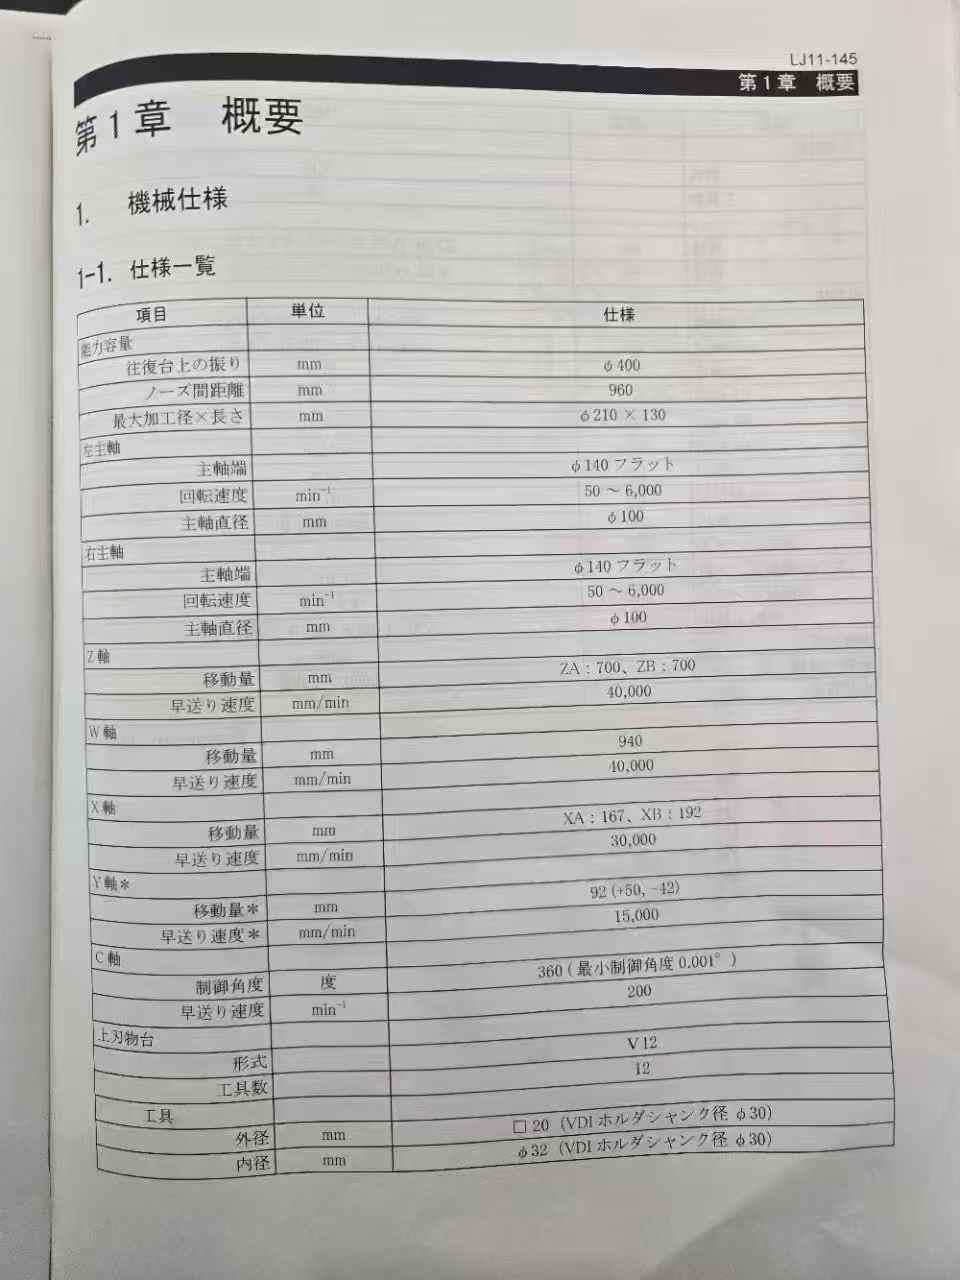 LJ11-145
第1章 概要
第1章 概要
1. 機械仕様
1-1. 仕様一覧
項目 単位 仕様
能力容量
往復台上の振り mm φ400
ノーズ間距離 mm 960
最大加工径×長さ mm φ210 × 130
左主軸
主軸端 φ140 フラット
回転速度 min⁻¹ 50 ～ 6,000
主軸直径 mm φ100
右主軸
主軸端 φ140 フラット
回転速度 min⁻¹ 50 ～ 6,000
主軸直径 mm φ100
Z 軸
移動量 mm ZA：700、ZB：700
早送り速度 mm/min 40,000
W 軸
移動量 mm 940
早送り速度 mm/min 40,000
X 軸
移動量 mm XA：167、XB：192
早送り速度 mm/min 30,000
Y 軸＊
移動量＊ mm 92 (+50, -42)
早送り速度＊ mm/min 15,000
C 軸
制御角度 度 360 ( 最小制御角度 0.001° )
早送り速度 min⁻¹ 200
上刃物台
形式 V12
工具数 12
工具
外径 mm □ 20（VDI ホルダシャンク径 φ30）
内径 mm φ32（VDI ホルダシャンク径 φ30）